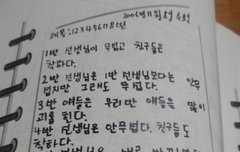 제목: 1 2 3 4 5 6 7 8 반
1반 선생님이 무섭고 친구들은
착하다.
2반 선생님은 1반 선생님보다는 안무
섭지만 그래도 무섭다.
3반 애들은 우리반 애들을 많이
괴롭힌다.
4반 선생님은 안무섭다. 친구들도
착하다.